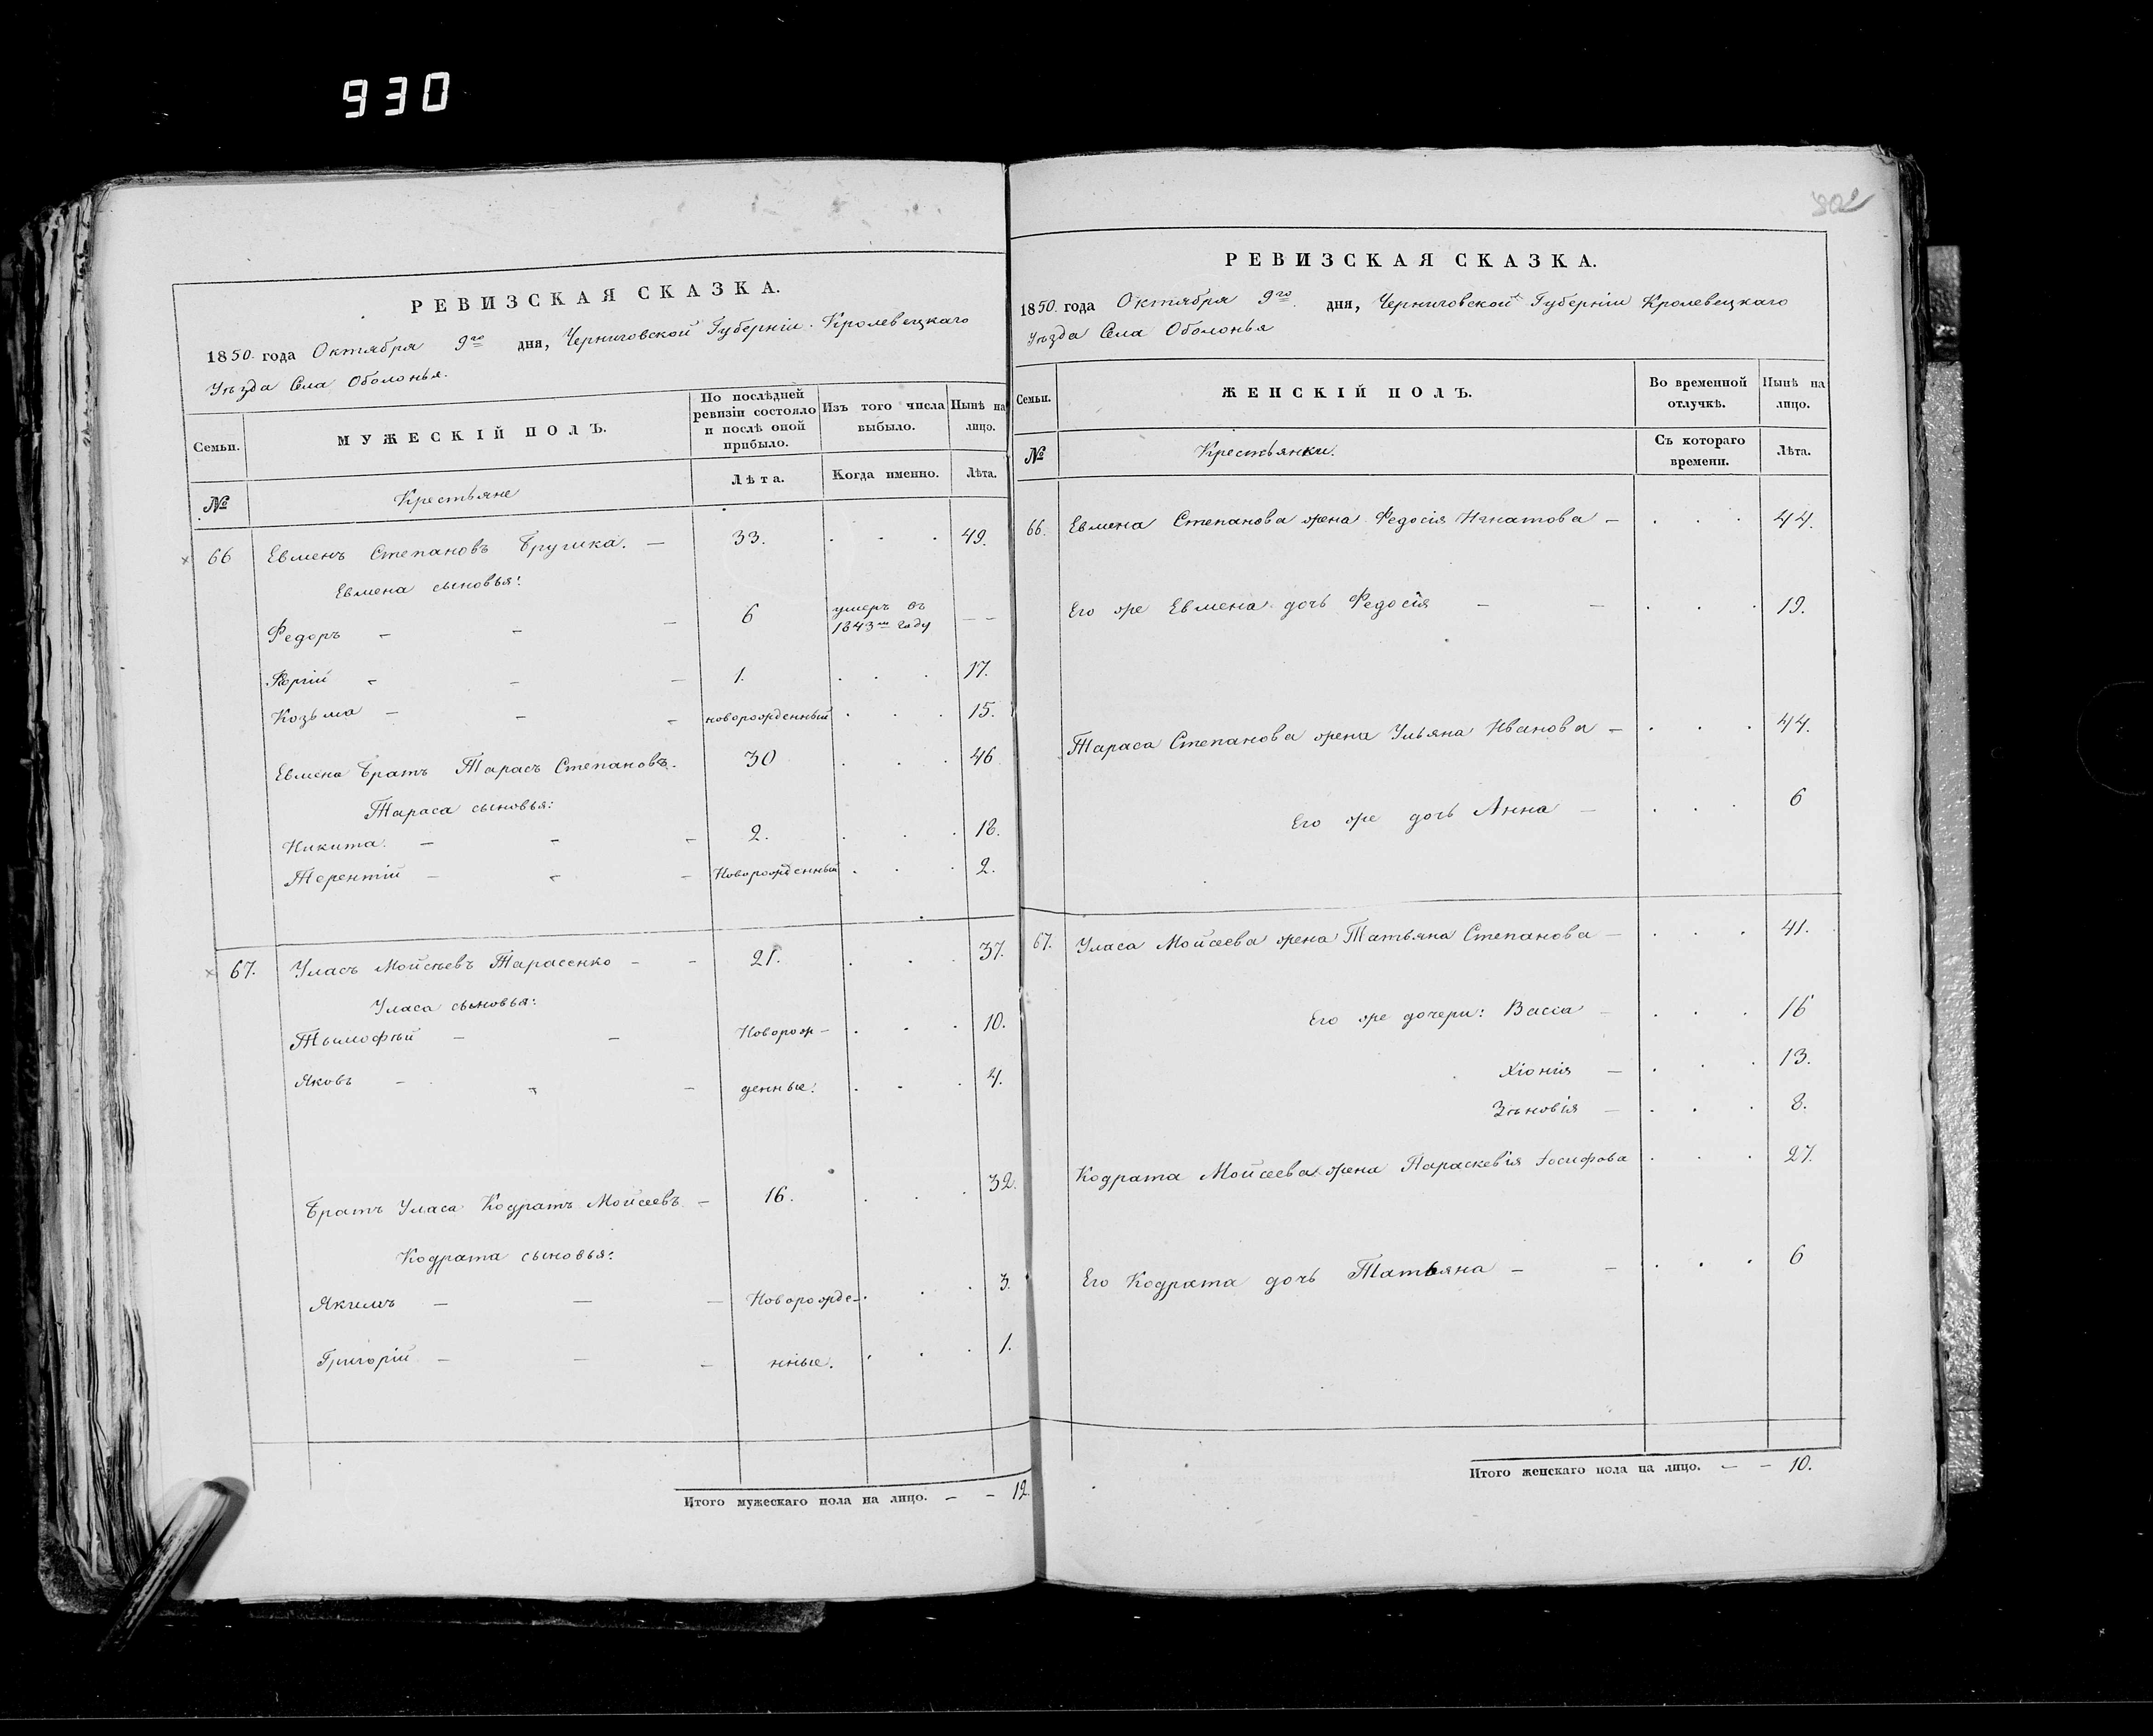 930
РЕВИЗСКАЯ СКАЗКА.
1850. года Октября 9го дня, Черниговской Губерніи Кролевецкаго
Уѣзда Села Оболонья.
Семьи.
МУЖЕСКІЙ ПОЛЪ.
По послѣдней ревизіи состояло и послѣ оной прибыло.
Изъ того числа выбыло.
Нынѣ на лицо.
№
Крестьяне
Лѣта.
Когда именно.
Лѣта.
66 Евменъ Степановъ — 33. . . . 49.
Евмена сыновья:
Федоръ - - - 6 умеръ въ 1843мъ году — —
- - - 1. . . . 17.
Козьма - - - новорожденный . . . 15.
Евмена братъ Тарасъ Степановъ. 30 . . . 46
Тараса сыновья:
Никита. - - - 2. . . . 18.
Терентій - - - Новорожденный . . . 2.
67. Уласъ Мойсѣевъ Тарасенко - - 21. . . . 37.
Уласа сыновья:
Тымофѣй - - Новорож- . . . 10.
Яковъ - - - денные: . . . 4.
Братъ Уласа Кодратъ Мойсеевъ - 16. . . . 32.
Кодрата сыновья:
Якимъ - - - Новорожде- . . . 3.
Григорій - - - нные. . . . 1.
Итого мужескаго пола на лицо. — - 12.
РЕВИЗСКАЯ СКАЗКА.
1850. года Октября 9го дня, Черниговской Губерніи Кролевецкаго
Уѣзда Села Оболонья
Семьи.
ЖЕНСКІЙ ПОЛЪ.
Во временной отлучкѣ.
Нынѣ на лицо.
№
Крестьянки.
Съ котораго времени.
Лѣта.
66. Евмена Степанова жена Федосія Игнатова - . . . 44.
Его же Евмена дочь Федосія — — . . . 19.
Тараса Степанова жена Ульяна Иванова - . . . 44.
Его же дочь Анна — . . . 6
67. Уласа Мойсеева жена Татьяна Степанова — . . . 41.
Его же дочери: Васса — . . . 16
Хіонія — . . . 13.
Зѣновія — . . . 8.
Кодрата Мойсеева жена Параскевія Іосифова . . . 27.
Его Кодрата дочь Татьяна — — . . . 6
Итого женскаго пола на лицо. — - 10.